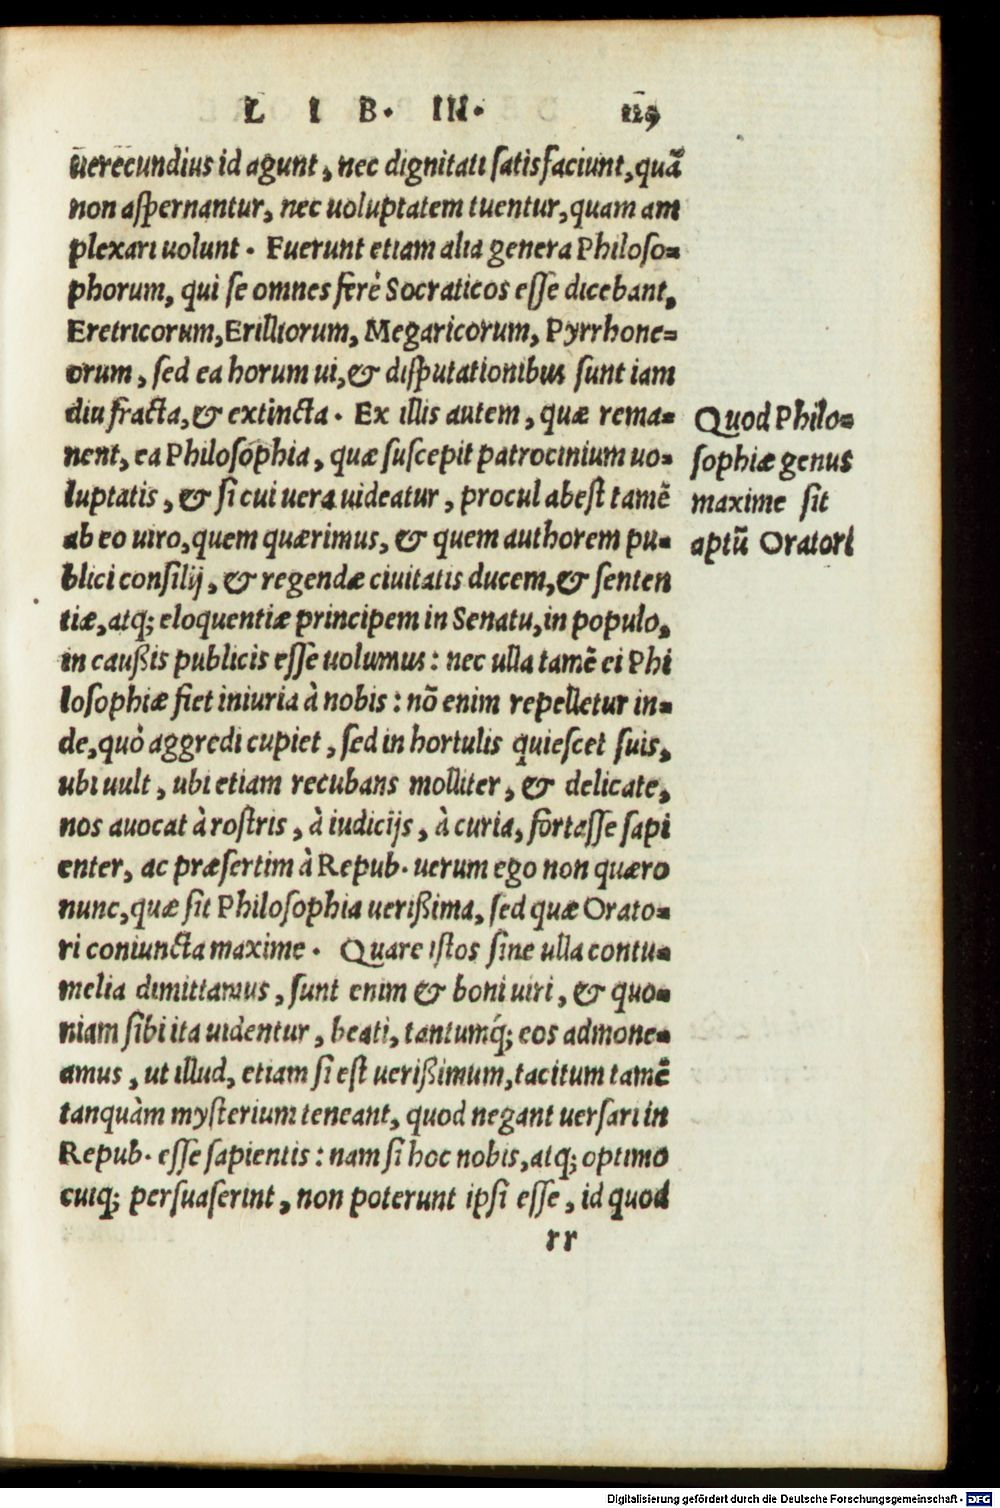 L I B. III. 129
uerecundius id agunt, nec dignitati satisfaciunt, quã
non aspernantur, nec uoluptatem tuentur, quam am
plexari uolunt. Fuerunt etiam alia genera Philoso-
phorum, qui se omnes ferè Socraticos esse dicebant,
Eretricorum, Erilliorum, Megaricorum, Pyrrhone-
orum, sed ea horum ui, & disputationibus sunt iam
diu fracta, & extincta. Ex illis autem, quæ rema-
nent, ea Philosophia, quæ suscepit patrocinium uo-
luptatis, & si cui uera uideatur, procul abest tamẽ
ab eo uiro, quem quærimus, & quem authorem pu-
blici consilij, & regendæ ciuitatis ducem, & senten
tiæ, atq; eloquentiæ principem in Senatu, in populo,
in caußis publicis esse uolumus: nec ulla tamẽ ei Phi
losophiæ fiet iniuria à nobis: nõ enim repelletur in-
de, quò aggredi cupiet, sed in hortulis quiescet suis,
ubi uult, ubi etiam recubans molliter, & delicate,
nos auocat à rostris, à iudicijs, à curia, fortasse sapi
enter, ac præsertim à Repub. uerum ego non quæro
nunc, quæ sit Philosophia uerißima, sed quæ Orato-
ri coniuncta maxime. Quare istos sine ulla contu-
melia dimittamus, sunt enim & boni uiri, & quo-
niam sibi ita uidentur, beati, tantumq́; eos admone-
amus, ut illud, etiam si est uerißimum, tacitum tamẽ
tanquàm mysterium teneant, quod negant uersari in
Repub. esse sapientis: nam si hoc nobis, atq; optimo
cuiq; persuaserint, non poterunt ipsi esse, id quod
rr
Quod Philo-
sophiæ genus
maxime sit
aptũ Oratori
Digitalisierung gefördert durch die Deutsche Forschungsgemeinschaft - DFG